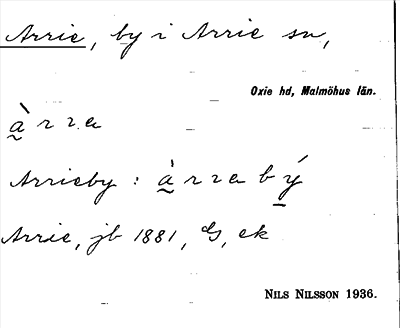 Arrie, by i Arrie sn,
Oxie hd, Malmöhus län.
à̰ r r a
Arrieby : à̰ r r a b ý
Arrie, jb 1881, G, ek
NILS NILSSON 1936.